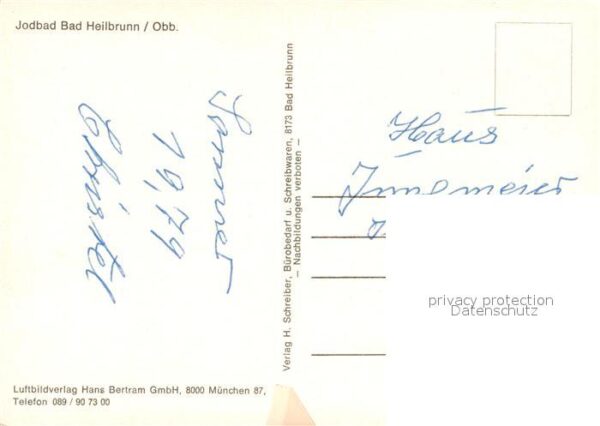 Jodbad Bad Heilbrunn / Obb.
Sommer
1979
Christel
Verlag H. Schreiber, Bürobedarf u. Schreibwaren, 8173 Bad Heilbrunn
– Nachbildungen verboten –
Haus
J
privacy protection
Datenschutz
Luftbildverlag Hans Bertram GmbH, 8000 München 87,
Telefon 089 / 90 73 00